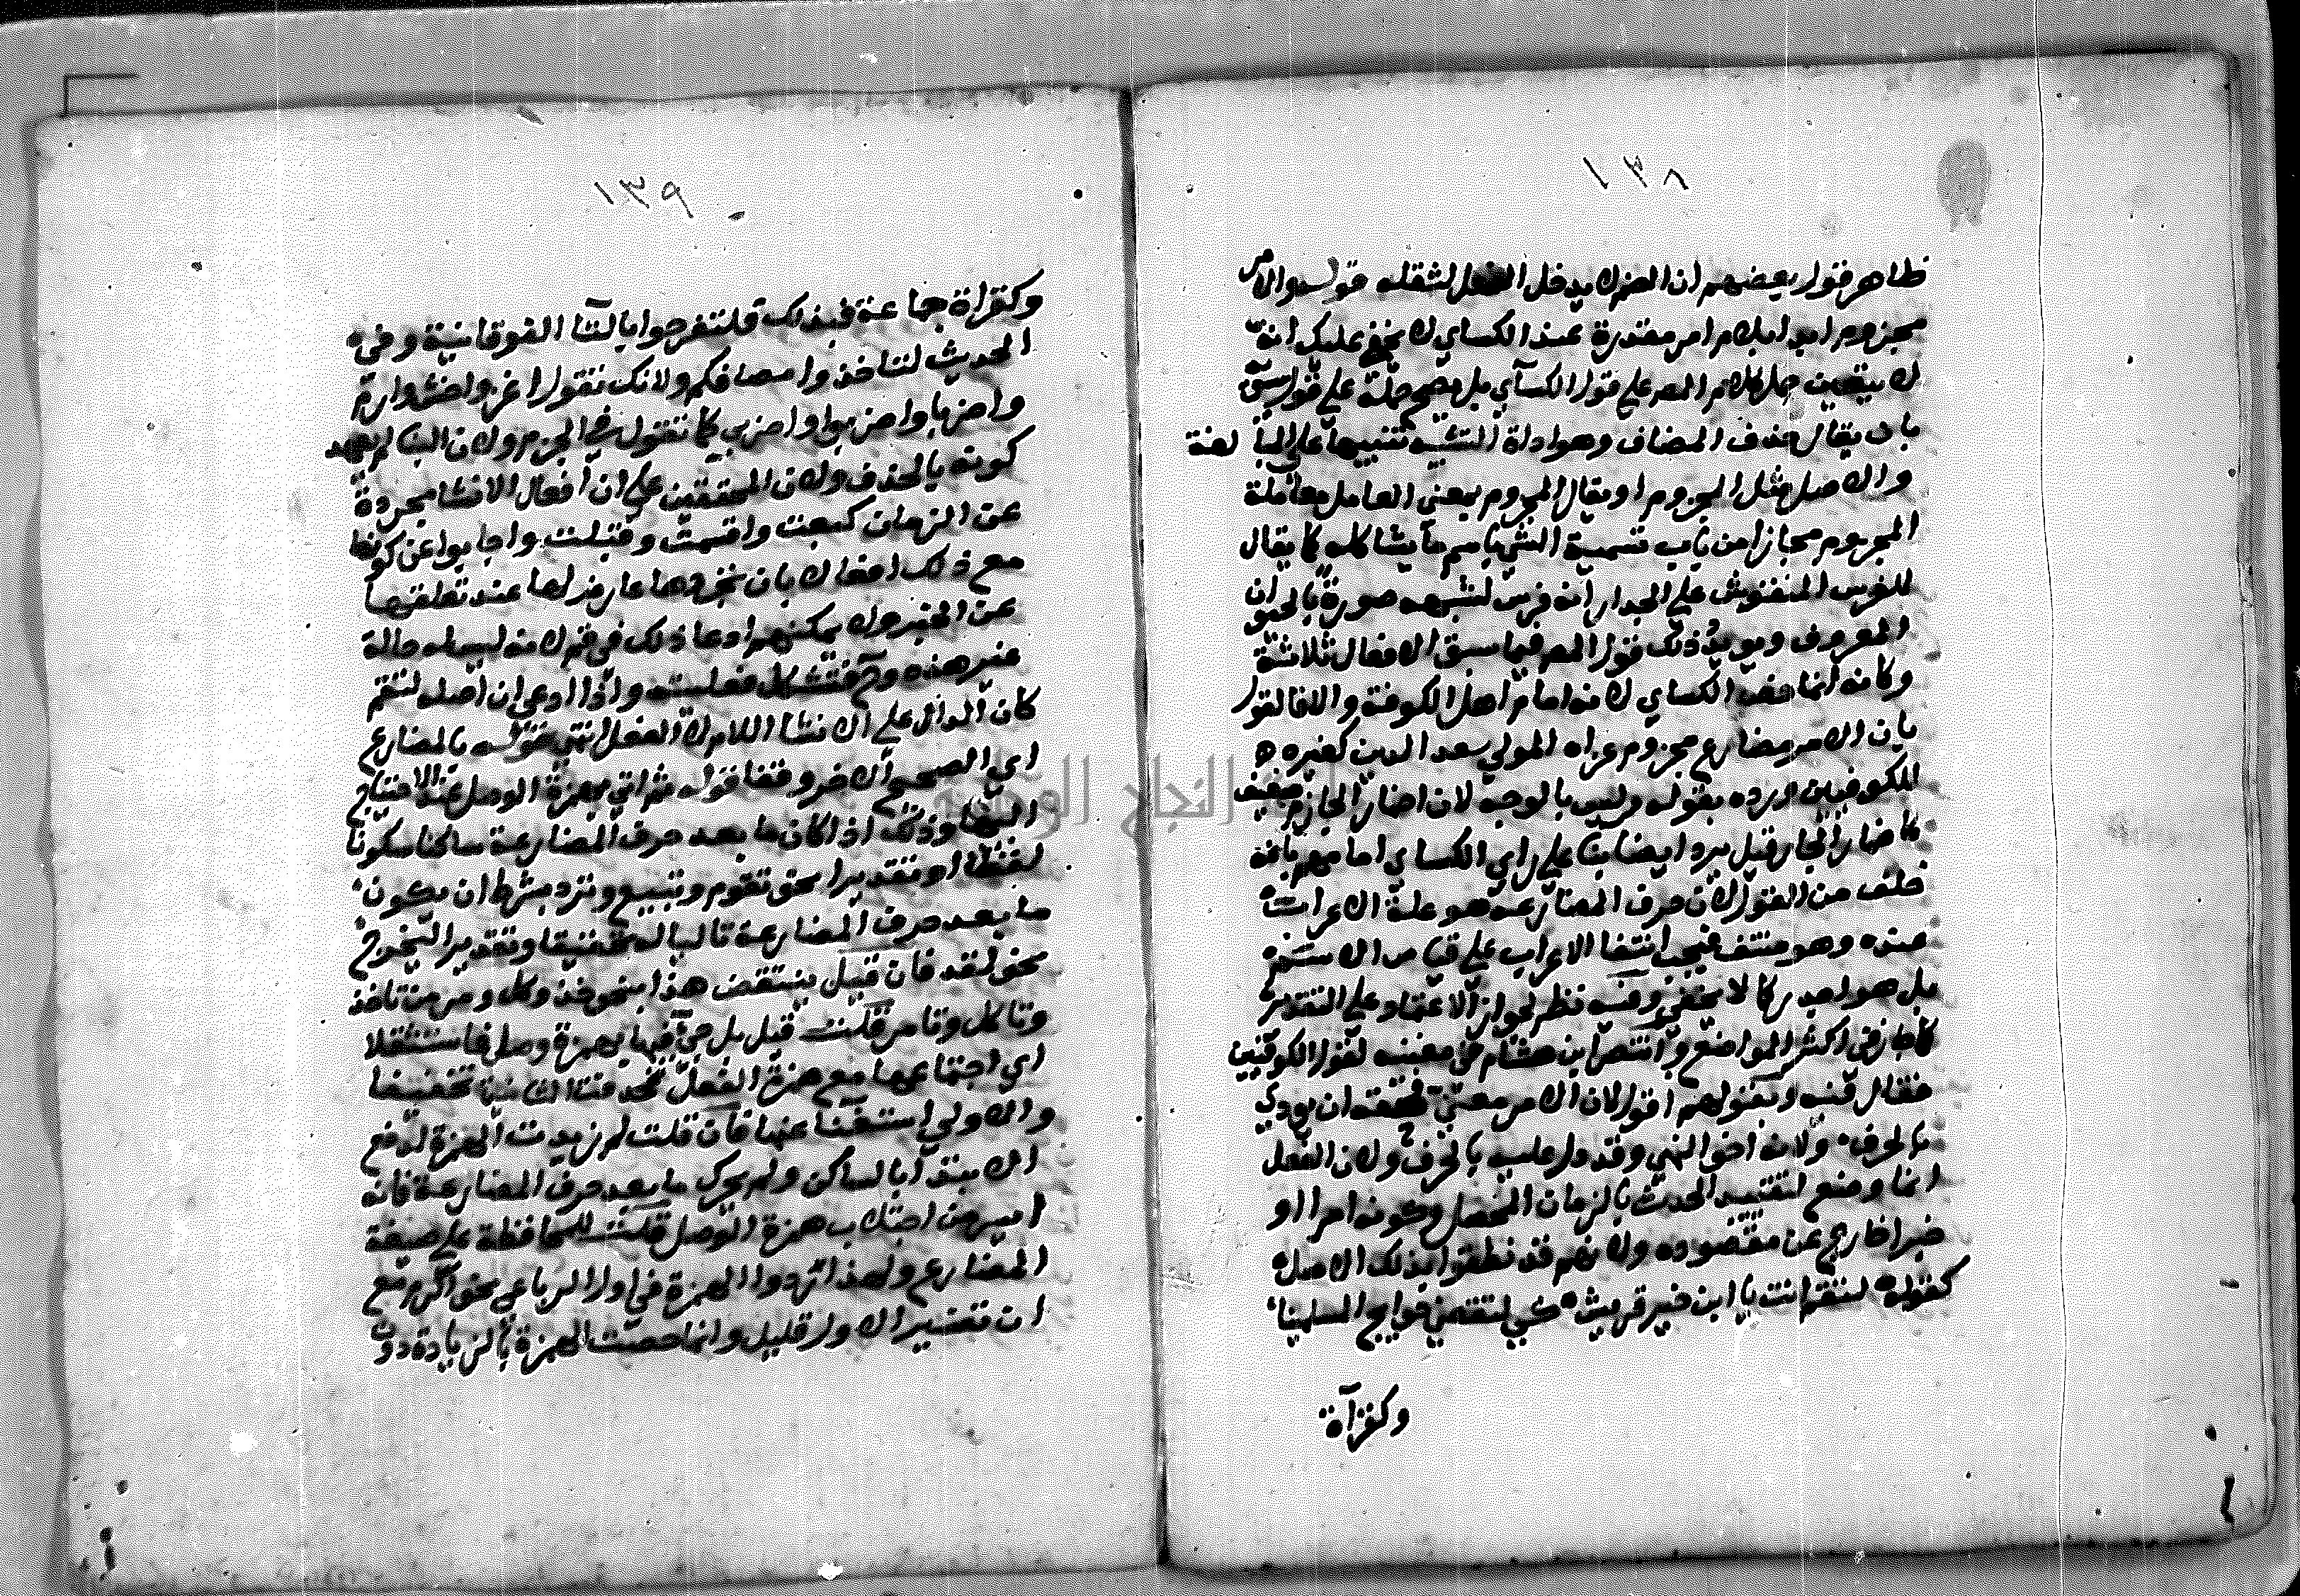 ١٣٨
ظاهر قول بعضهم ان الضم لا يدخل الفعل لثقله قوله والامر
مجزوم ابدا بلام امر مقدرة عند الكساي لا يخفى عليك انه
لا يتعين حمل كلام المصر على قول الكسآي بل يصح حمله على قول
بان يقال حذف المضاف وهو اداة التشبيه تنبيها على المبا لغة
والاصل مثل المجزوم او يقال المجزوم بمعنى العامل معاملة
المجزوم مجازا من باب تسمية الشي باسم ما يشاكله كما يقال
للفرس المنقوش على الجدار انه فرس لشبهه صورة بالحيوان
المعروف ويويد ذلك قول المصر فيما سبق الافعال ثلاثة
وكانه انما خص الكساي لانه امام اهل الكوفة والا فالقول
بان الامر مضارع مجزوم عزاه المولي سعد الدين كغيره
للكوفيين ورده بقوله وليس بالوجه لان اضمار الجازم ضعيف
كاضمار الجار قيل يرد ايضا بنا على راي الكساي
خلف من القول لان حرف المضارعة هو علة الاعراب
عنده وهو منتف فيجب انتفا الاعراب على قياس
بل هو اجدر كما لا يخفى وفيه نظر لجواز الاعتماد على التقدير
كما جاز في اكثر المواضع وانتصر ابن هشام في مغنيه لقول الكوفيين
فقال فيه وبقولهم اقول لان الامر معنى فحقه ان يودي
بالحرف ولانه اخو النهي وقد دل عليه بالحرف ولان الفعل
انما وضع لتقييد الحدث بالزمان المحصل وكونه امرا او
خبرا خارج عن مقصوده ولانهم قد نطقوا بذلك الاصل
كقوله لتقم انت يا ابن خير قريش كي لتقضي حوايج المسلمينا
وكقرآة
١٣٩
وكقراة جماعة فبذلك فلتفرحوا بالتا الفوقانية وفي
الحديث لتاخذوا مصافكم ولانك تقول اغز واخش وارم
واضربا واضربوا واضربي كما تقول في الجزم ولان البنا لم يعهد
كونه بالحذف ولان المحققين على ان افعال الانشا مجردة
عن الزمان كبعت واقسمت وقبلت واجابوا عن كونها
مع ذلك افعالا بان تجردها عارض لها عند نقلها
عن الخبر ولا يمكنهم ادعا ذلك في قم لانه ليس له حالة
غير هذه وح فتشكل فعليته واذا ادعي ان اصله لتقم
كان الدال على الانشا اللام لا الفعل انتهى قوله بالمضارع
اي الصحيح الاخر وقفا قوله ثم اتي بهمزة الوصل عند الاحتياج
اليها وذلك اذا كان ما بعد حرف المضارعة ساكنا سكونا
لفظا او تقديرا نحو تقوم وتبيع وترد بشرط ان يكون
ما بعد حرف المضارعة تاليا له تحقيقا وتقديرا ليخرج
نحو لقد فان قيل ينتقض هذا بنحو خذ وكل ومر من تاخذ
وتاكل وتامر قلت قيل بل جي فيها بهمزة وصل فاستثقلا
اي اجتماعهما مع همزة الفعل فحذفت الثانية تخفيفا
والاولي استغنا عنها فان قلت لم زيدت الهمزة لدفع
الابتدا بالساكن ولم يحرك ما بعد حرف المضارعة فانه
ايسر من اجتلاب همزة الوصل قلت للمحافظة على صيغة
المضارع ولهذا ردوا الهمزة في اول الرباعي نحو اكرم مع
ان تغيير الاول قليل وانما خصت الهمزة بالزيادة دون